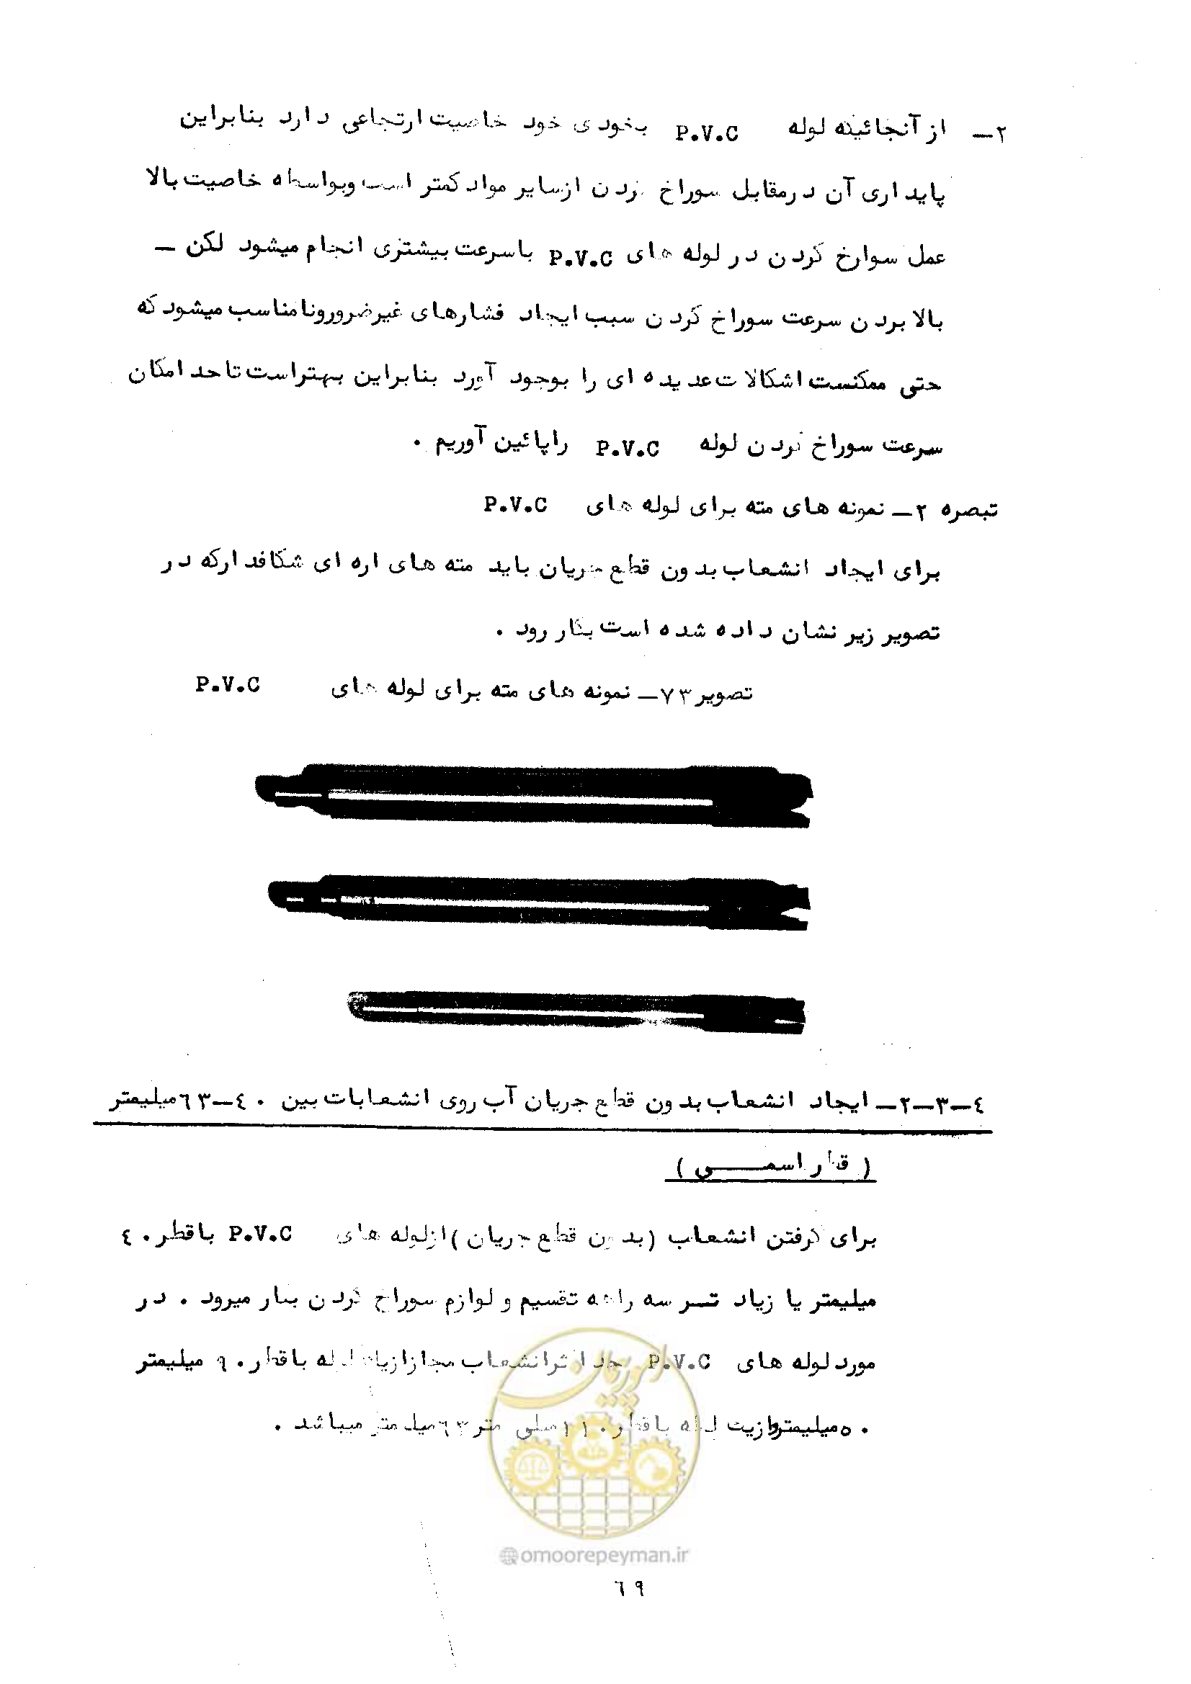 ۲ــ از آنجائیکه لوله P.V.C بخودی خود خاصیت ارتجاعی دارد بنابراین
پایداری آن درمقابل سوراخ کردن ازسایر مواد کمتر است وبواسطه خاصیت بالا
عمل سوارخ کردن در لوله های P.V.C باسرعت بیشتری انجام میشود لکن ــ
بالا بردن سرعت سوراخ کردن سبب ایجاد فشارهای غیرضرورونامناسب میشود که
حتی ممکنست اشکالات عدیده ای را بوجود آورد بنابراین بهتراست تاحد امکان
سرعت سوراخ کردن لوله P.V.C راپائین آوریم .
تبصره ۲ــ نمونه های مته برای لوله های P.V.C
برای ایجاد انشعاب بدون قطع جریان باید مته های اره ای شکافدارکه در
تصویر زیر نشان داده شده است بکار رود .
تصویر۷۳ــ نمونه های مته برای لوله های P.V.C
٤ــ۳ــ۲ــ ایجاد انشعاب بدون قطع جریان آب روی انشعابات بین ٤۰ــ٦۳میلیمتر
( قطر اسمــــی )
برای گرفتن انشعاب (بدون قطع جریان )ازلوله های P.V.C باقطر ٤۰
میلیمتر یا زیاد تــر سه راهه تقسیم و لوازم سوراخ کردن بکار میرود . در
مورد لوله های P.V.C حداکثرانشعاب مجازازیک لوله باقطر ۹۰ میلیمتر
۵۰میلیمتر لوله باقطر ۱۱۰میلی متر ٦۳میلیمتر میباشد .
امور پیمان
@omoorepeyman.ir
٦۹